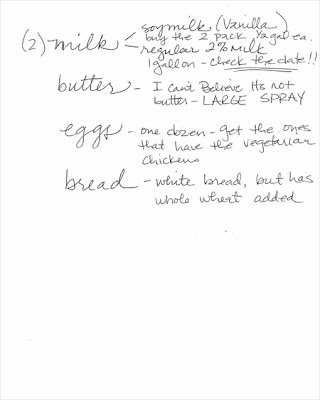 soymilk (Vanilla)
buy the 2 pack ½ gal ea.
(2) milk < regular 2% milk
1 gallon - check the date!!
butter - I can't Believe Its not
butter - LARGE SPRAY
eggs - one dozen - get the ones
that have the vegetarian
chickens
bread - white bread, but has
whole wheat added